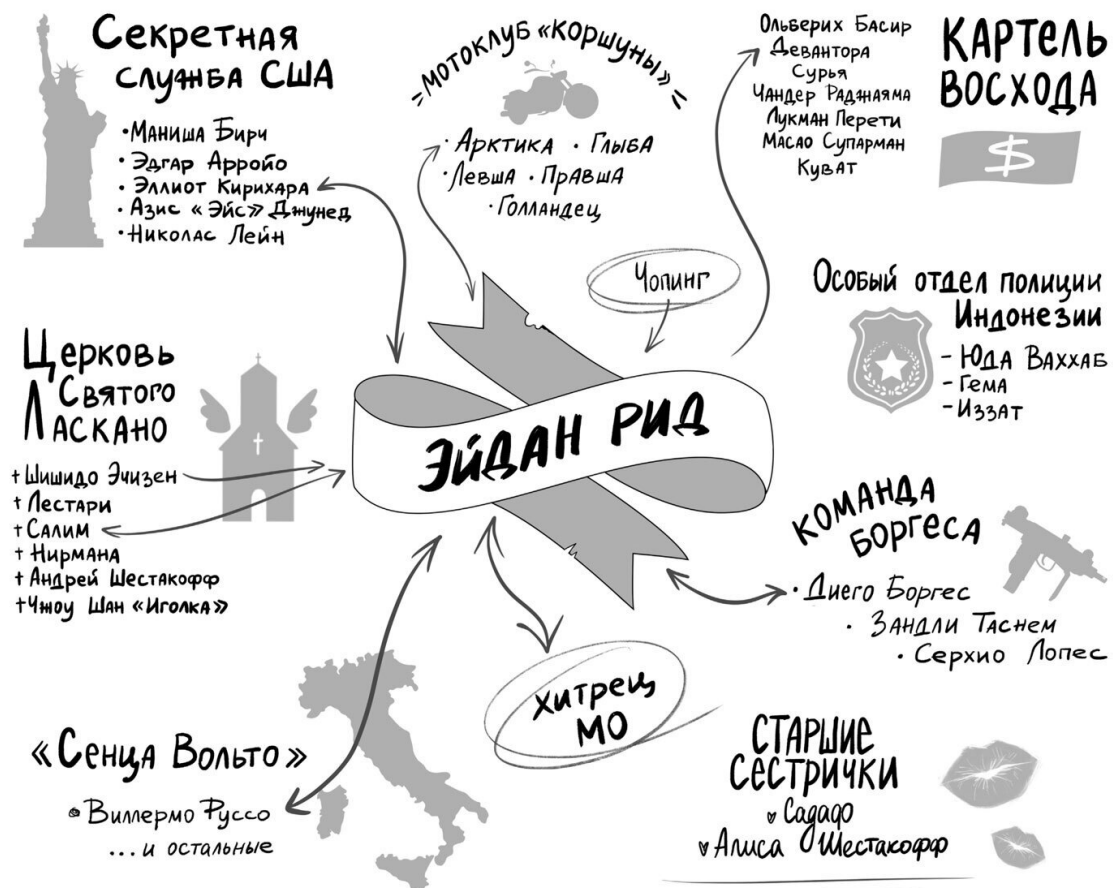 Секретная
служба США
• Маниша Бири
• Эдгар Арройо
• Эллиот Кирихара
• Азис «Эйс» Джунед
• Николас Лейн
Мотоклуб «Коршуны»
• Арктика • Глыба
• Левша • Правша
• Голландец
Ольберих Басир
Девантора
Сурья
Чандер Раджаяма
Лукман Перети
Масао Супарман
Куват
КАРТЕЛЬ
ВОСХОДА
$
Чопинг
Особый отдел полиции
Индонезии
- Юда Ваххаб
- Гема
- Иззат
Церковь
Святого
Ласкано
+ Шишидо Эчизен
+ Лестари
+ Салим
+ Нирмана
+ Андрей Шестакофф
+ Чжоу Шан «Иголка»
ЭЙДАН РИД
КОМАНДА
БОРГЕСА
• Диего Боргес
• Зандли Таснем
• Серхио Лопес
ХИТРЕЦ
МО
«Сенца Вольто»
• Виллермо Руссо
... и остальные
СТАРШИЕ
СЕСТРИЧКИ
Садафо
Алиса Шестакофф